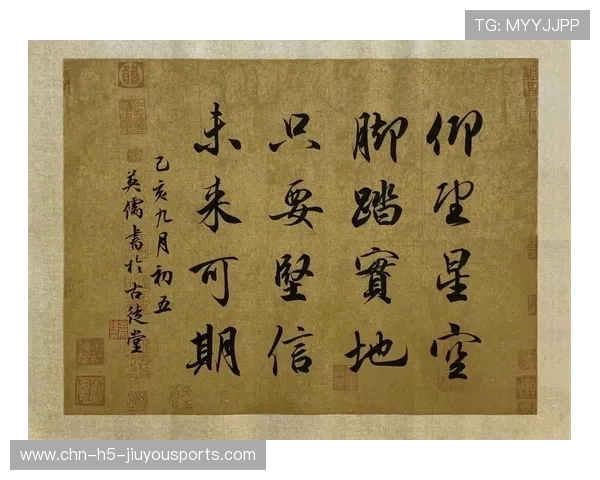 TG: MYYJJPP
仰望星空
脚踏實地
只要堅信
未来可期
乙亥九月初五
英儒書於古徒堂
www.chn-h5-jiuyousports.com